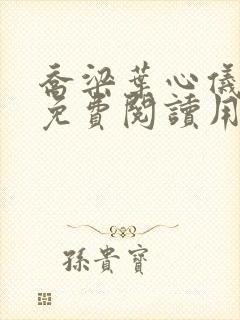 喬梁葉心儀
免費閱讀用
孫貴寶